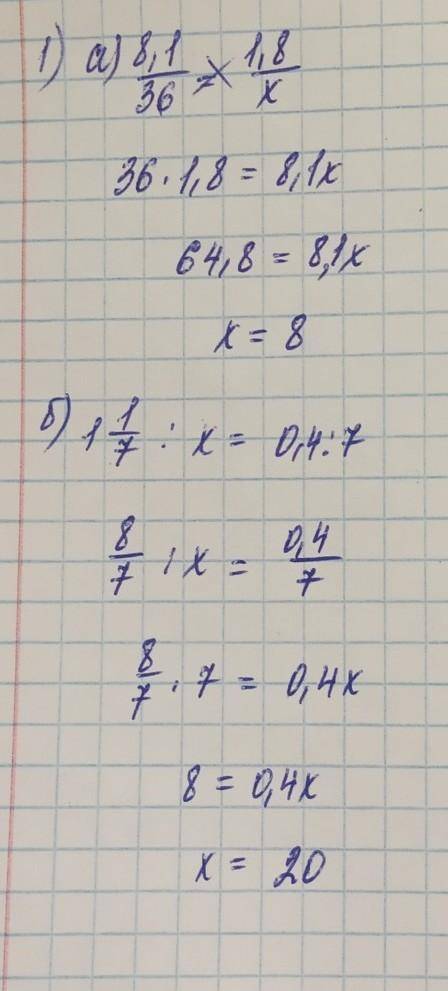 1) а) 8,1/36 = 1,8/x
36 · 1,8 = 8,1x
64,8 = 8,1x
x = 8
б) 1 1/7 : x = 0,4 : 7
8/7 : x = 0,4/7
8/7 · 7 = 0,4x
8 = 0,4x
x = 20